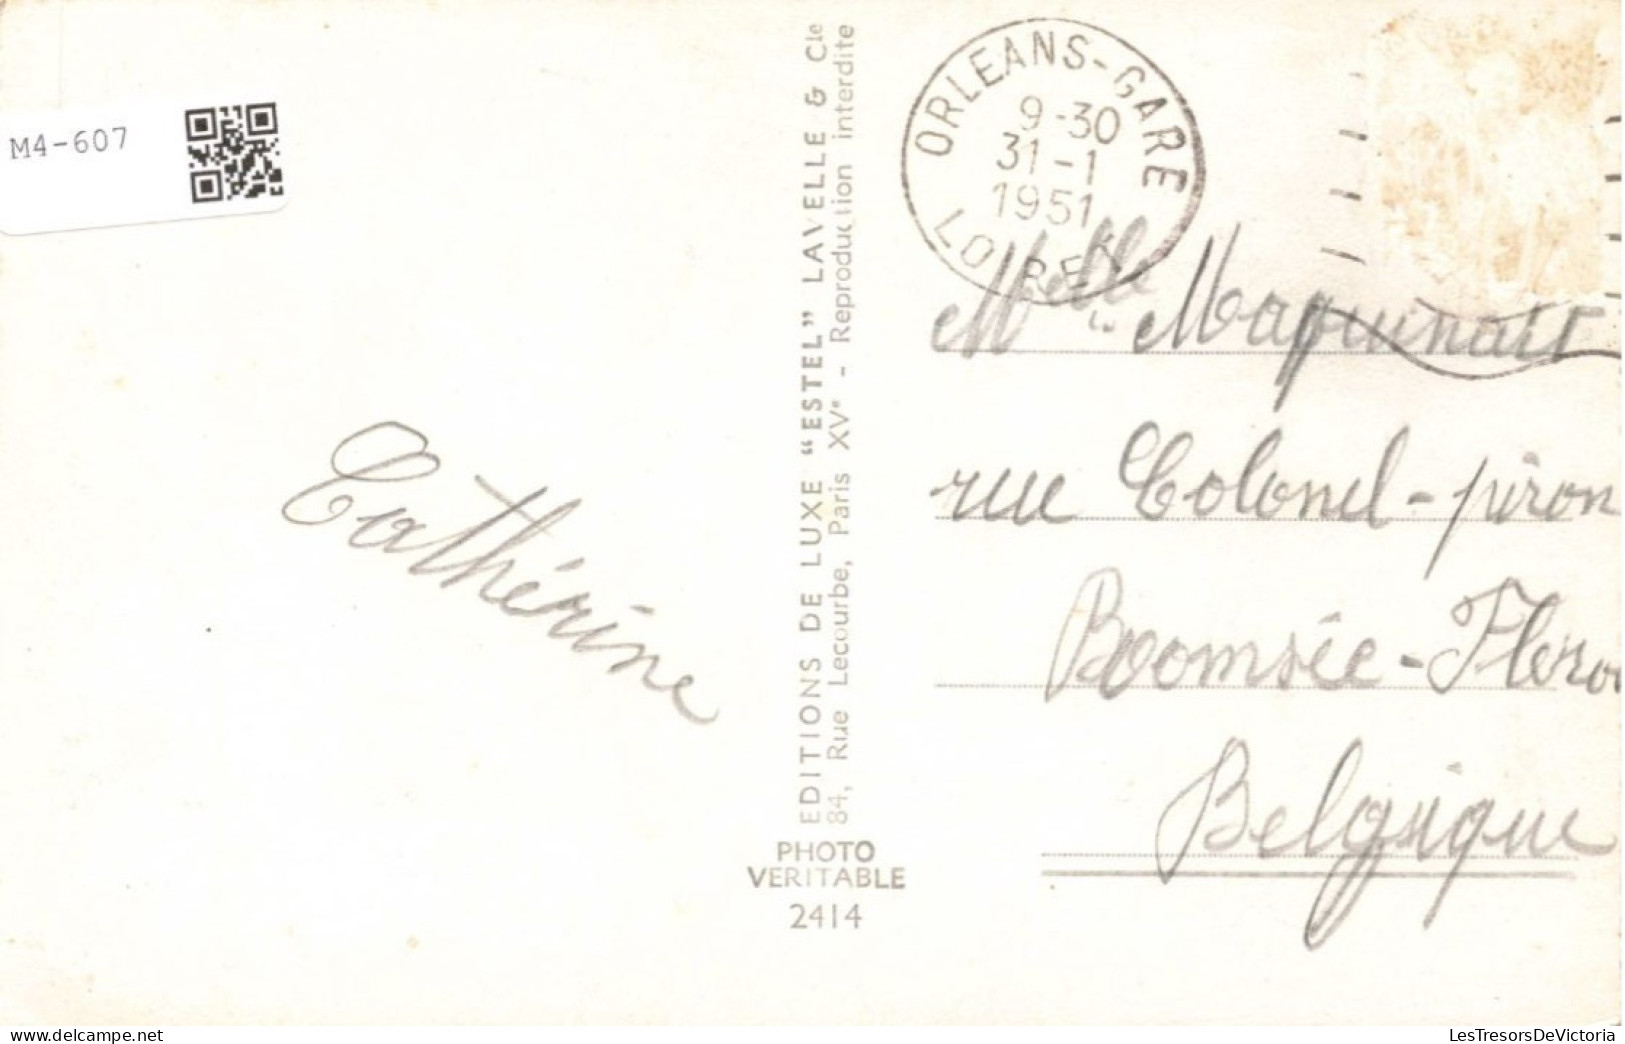 M4-607
ORLEANS-GARE
9-30
31-1
1951
LOIRET
Melle Maquinatt
rue Colonel-piron
Boomsée-Florou
Belgique
Cathérine
EDITIONS DE LUXE "ESTEL" LAVELLE & Cie
84, Rue Lecourbe, Paris XVe - Reproduction interdite
PHOTO
VERITABLE
2414
delcampe.net
LesTresorsDeVictoria